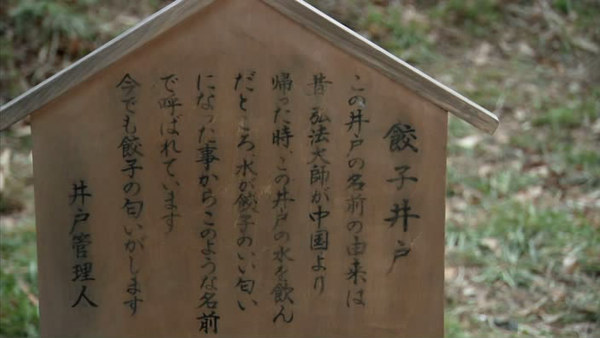 餃子井戸
この井戸の名前の由来は
昔弘法大師が中国より
帰った時、この井戸の水を飲ん
だところ、水が餃子のいい匂い
になった事からこのような名前
で呼ばれています
今でも餃子の匂いがします
井戸管理人